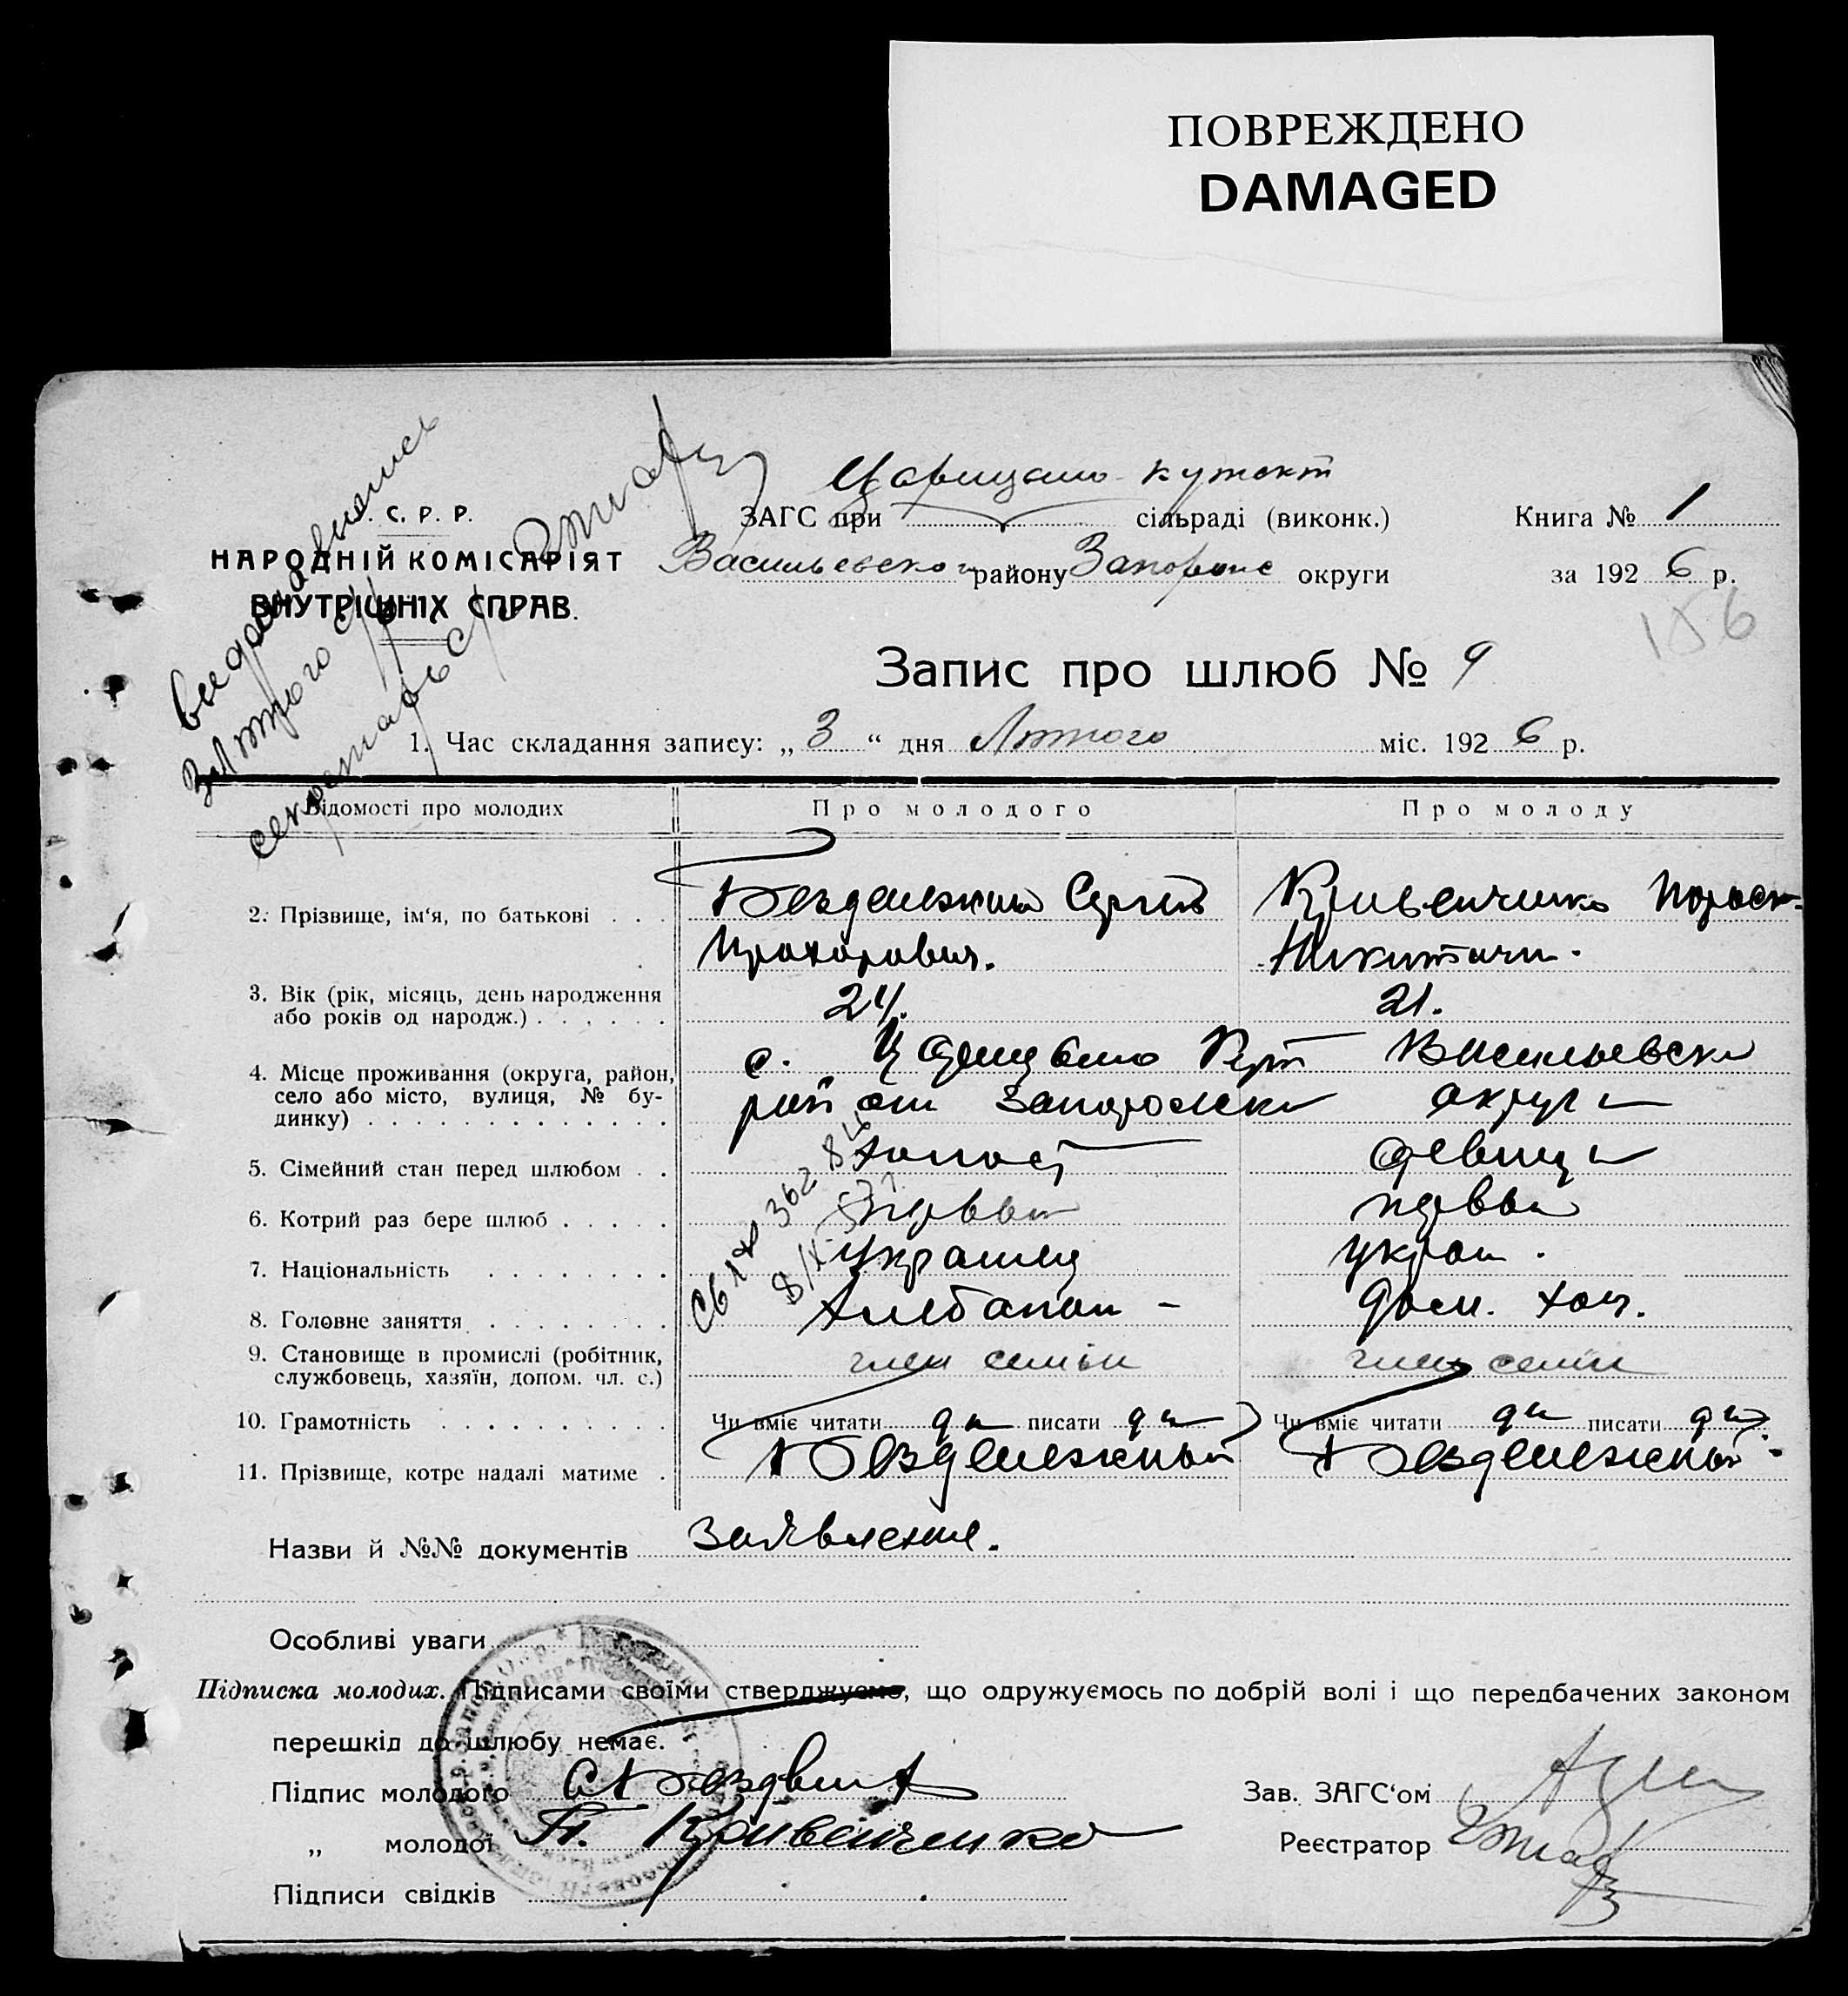 ПОВРЕЖДЕНО
DAMAGED
Царицыно-Кутскт
. С. Р. Р.
ЗАГС при сільраді (виконк.)
Книга № 1
НАРОДНІЙ КОМІСАРІЯТ
ВНУТРІШНІХ СПРАВ.
Васильевского району Запорожс округи
за 192 6 р.
156
Запис про шлюб № 9
1. Час складання запису: „ 3 “ дня Лютого міс. 192 6 р.
Відомості про молодих
Про молодого
Про молоду
2. Прізвище, ім‘я, по батькові . . .
Сергій
Прохорович.
Никитични.
3. Вік (рік, місяць, день народження
або років од народж.) . . . . . .
24.
21.
4. Місце проживання (округа, район,
село або місто, вулиця, № бу-
динку) . . . . . . . . . . . . .
с. Кут Васильевски
район Запорожски округи
5. Сімейний стан перед шлюбом . .
холост
девица
6. Котрий раз бере шлюб . . . . .
первый
первы
7. Національність . . . . . . .
украинец
укра .
8. Головне заняття . . . . . . . .
Хлебопаш -
дом. хоз.
9. Становище в промислі (робітник,
службовець, хазяїн, допом. чл. с.)
член семьи
член семьи
10. Грамотність . . . . . . . . .
Чи вміє читати да писати да
Чи вміє читати да писати да
11. Прізвище, котре надалі матиме .
Назви й №№ документів Заявление.
Особливі уваги
Підписка молодих. Підписами своїми стверджуємо, що одружуємось по добрій волі і що передбачених законом
перешкід до шлюбу немає.
Підпис молодого
Зав. ЗАГС‘ом
„ молодої П. Кривенченко
Реєстратор
Підписи свідків